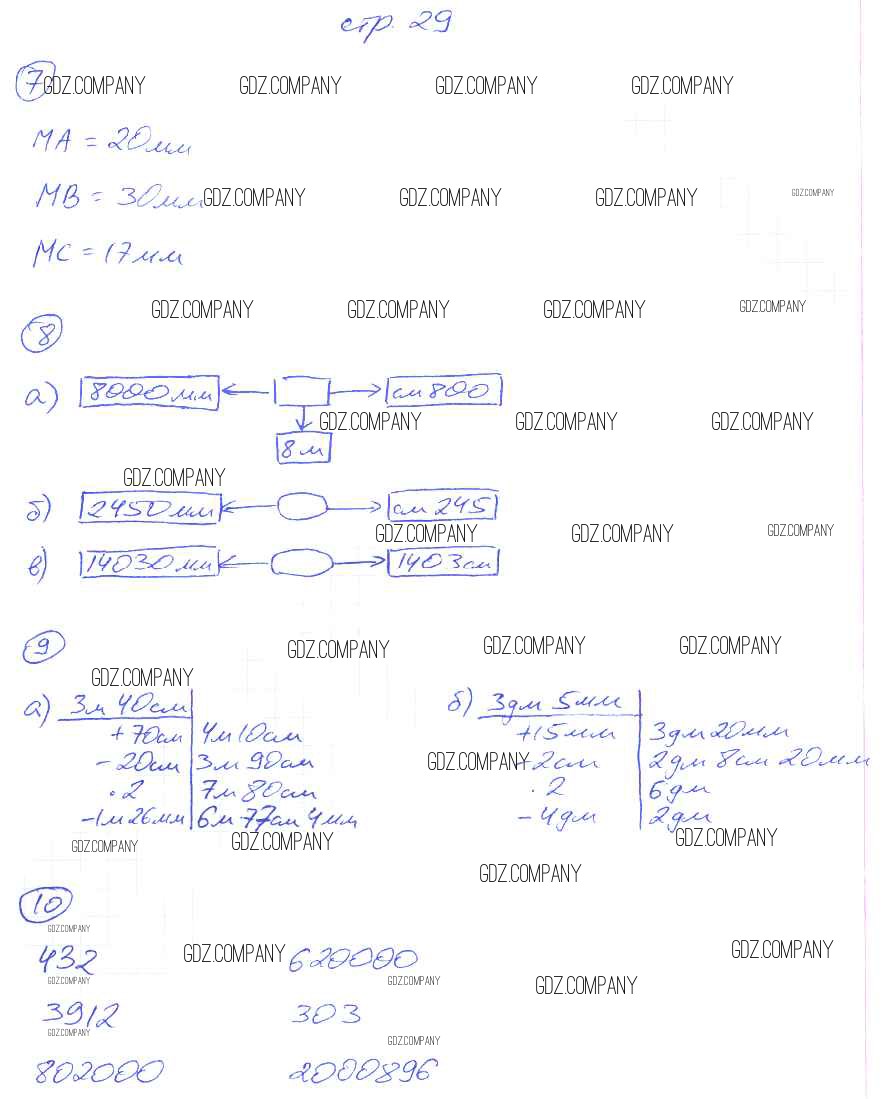 стр. 29
7 GDZ.COMPANY GDZ.COMPANY GDZ.COMPANY GDZ.COMPANY
MA = 20мм
MB = 30мм GDZ.COMPANY GDZ.COMPANY GDZ.COMPANY GDZ.COMPANY
MC = 17мм
GDZ.COMPANY GDZ.COMPANY GDZ.COMPANY GDZ.COMPANY
8
а) 8000мм см800
GDZ.COMPANY GDZ.COMPANY GDZ.COMPANY
8м
GDZ.COMPANY
б) 2450мм см 245
GDZ.COMPANY GDZ.COMPANY GDZ.COMPANY
в) 14030мм 1403см
9 GDZ.COMPANY GDZ.COMPANY GDZ.COMPANY
GDZ.COMPANY
а) 3м 40см
+70см 4м10см
-20см 3м 90см
·2 7м 80см
-1м26мм 6м 77см 4мм
б) 3дм 5мм
+15мм 3дм 20мм
GDZ.COMPANY +2см 2дм 8см 20мм
·2 6дм
-4дм 2дм
GDZ.COMPANY GDZ.COMPANY GDZ.COMPANY
GDZ.COMPANY
10
GDZ.COMPANY
432 GDZ.COMPANY 620000 GDZ.COMPANY
GDZ.COMPANY GDZ.COMPANY GDZ.COMPANY
3912 303
GDZ.COMPANY GDZ.COMPANY
802000 2000896